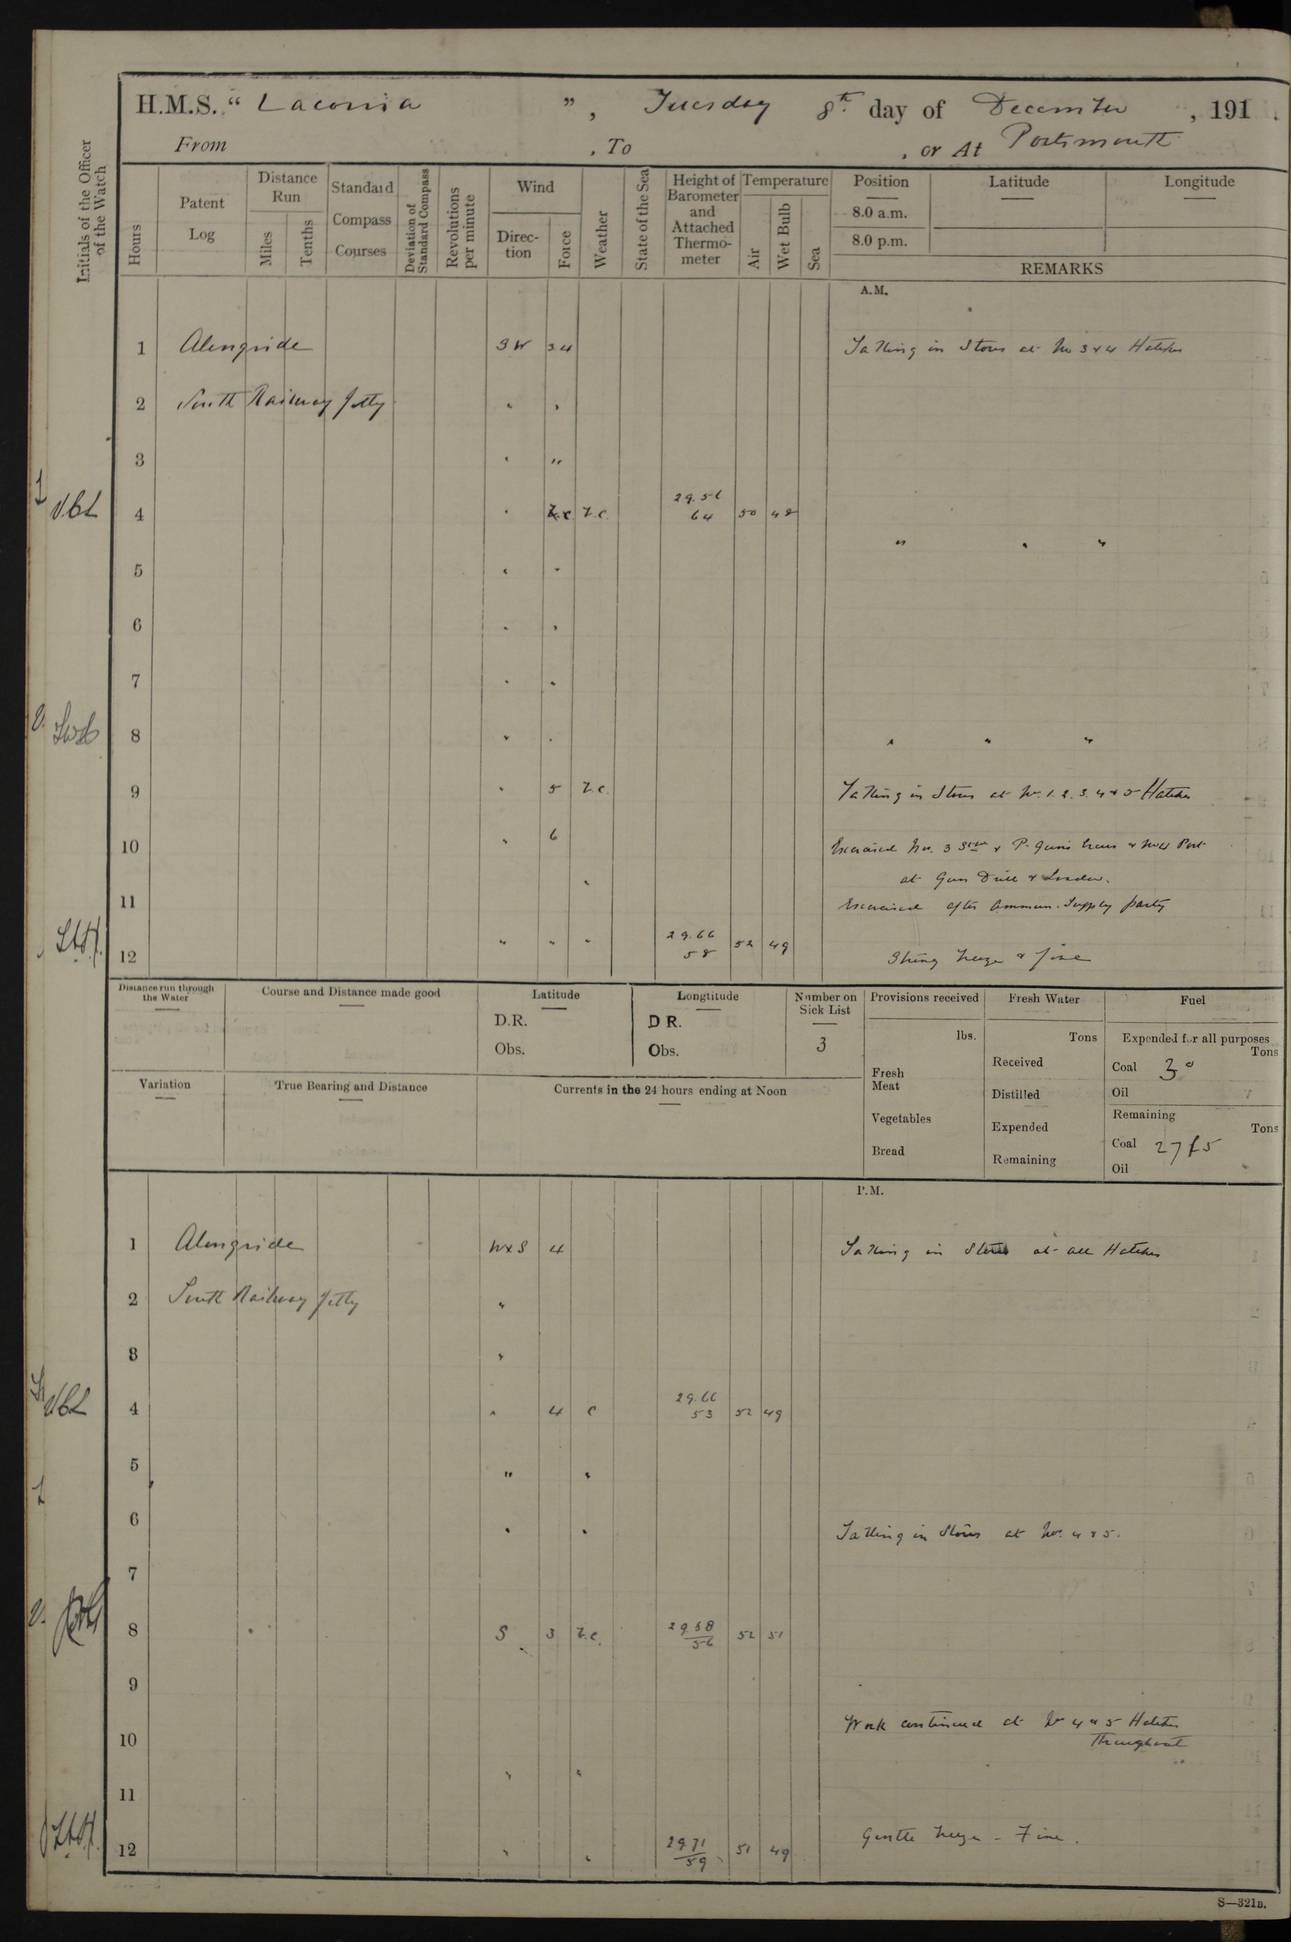 H.M.S. "Laconia", Tuesday 8th day of December, 191
From , To , or At Portsmouth
Initials of the Officer of the Watch
Hours
Patent Log
Distance Run
Miles
Tenths
Standard Compass Courses
Deviation of Standard Compass
Revolutions per minute
Wind
Direction
Force
Weather
State of the Sea
Height of Barometer and Attached Thermometer
Temperature
Air
Wet Bulb
Sea
Position
8.0 a.m.
8.0 p.m.
Latitude
Longitude
REMARKS
A.M.
1 Alongside SW 3.4 Taking in Stores at No 3 & 4 Hatches
2 South Railway Jetty " "
3 " "
4 " b.c. 29.56 64 50 48
" " "
5 " "
6 " "
7 " "
8 " " " " "
9 " 5 b.c. Taking in Stores at No. 1.2.3.4 & 5 Hatches
10 " 6 Exercised No. 3 & P. Guns Crews & No 4 Port
at Gun Drill & Loader.
11 " Exercised after Ammun. Supply party
12 " " " 29.66 58 52 49 Strong breeze & fine
Distance run through the Water
Course and Distance made good
Latitude
D.R.
Obs.
Longtitude
D R.
Obs.
Number on Sick List
3
Provisions received
lbs.
Fresh Meat
Vegetables
Bread
Fresh Water
Tons
Received
Distilled
Expended
Remaining
Fuel
Expended for all purposes
Tons
Coal 30
Oil
Remaining
Tons
Coal
Oil
Variation
True Bearing and Distance
Currents in the 24 hours ending at Noon
P.M.
1 Alongside WxS 4 Taking in Stores at all Hatches
2 South Railway Jetty "
3 "
4 " 4 c 29.66 53 52 49
5 " "
6 " " Taking in Stores at No. 4 & 5.
7
8 S 3 b.c. 29.68 56 52 51
9
Work continued at No 4 & 5 Hatches
10 throughout
11 " "
12 " " 29.71 59 51 49 Gentle breeze - Fine.
S—321B.